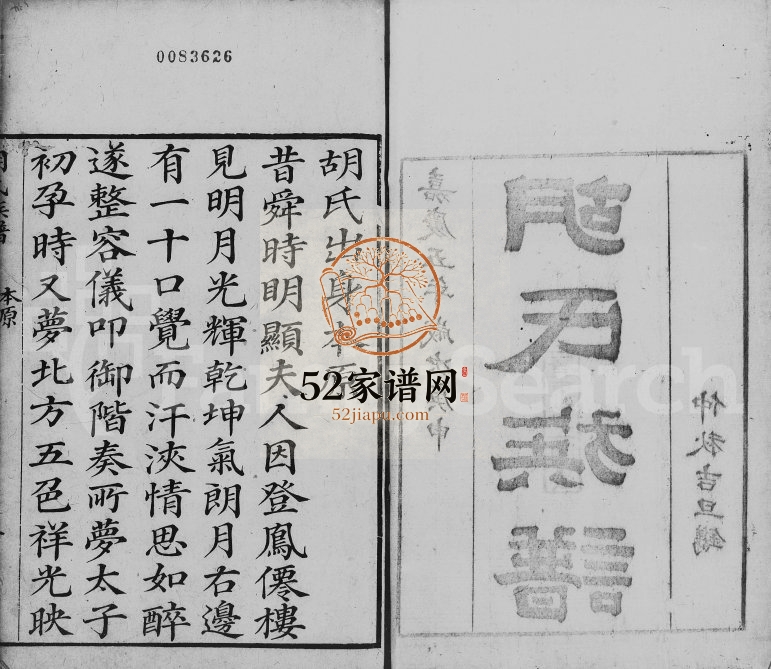 0083626
嘉慶五年歲次庚申
胡氏族譜
仲秋吉旦鐫
胡氏出身本原
昔舜時明顯夫人因登鳳僊樓
見明月光輝乾坤氣朗月右邊
有一十口覺而汗浹情思如醉
遂整容儀叩御階奏所夢太子
初孕時又夢北方五色祥光映
氏族譜
本原
52家谱网
52jiapu.com
FamilySearch